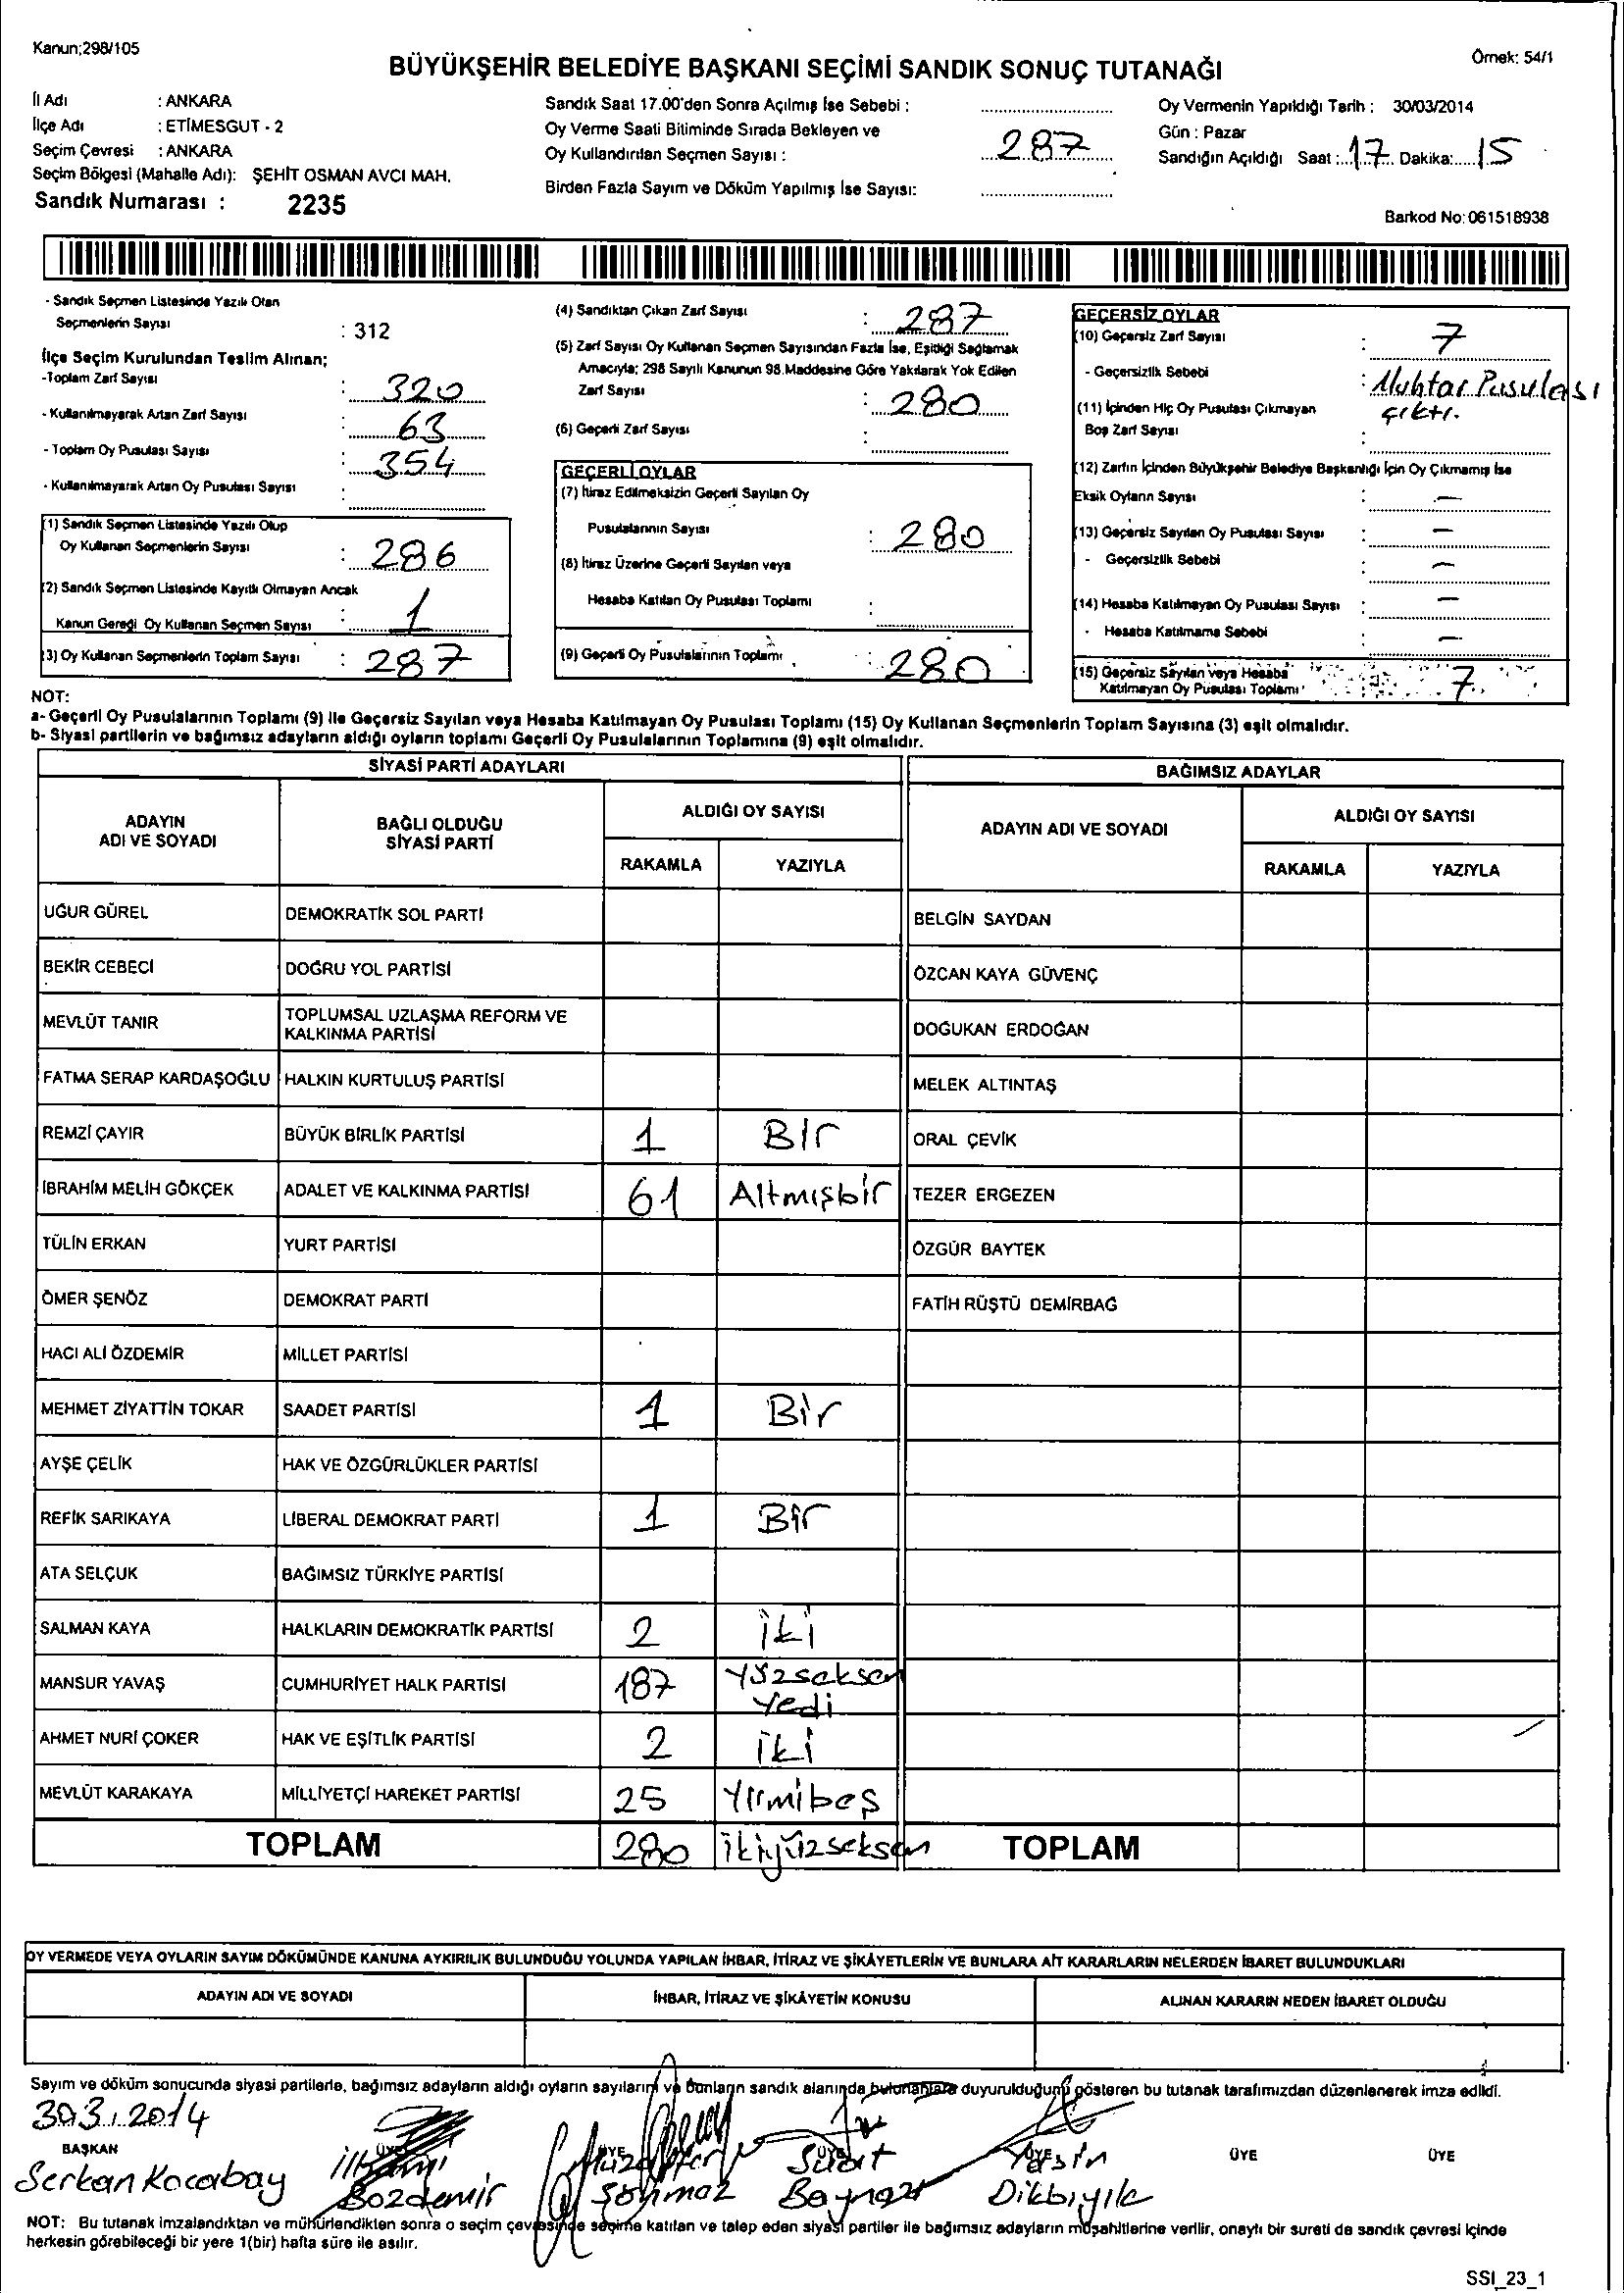 Kanun;298/105
Örnek: 54/1
BÜYÜKŞEHİR BELEDİYE BAŞKANI SEÇİMİ SANDIK SONUÇ TUTANAĞI
İl Adı : ANKARA
İlçe Adı : ETİMESGUT - 2
Seçim Çevresi : ANKARA
Seçim Bölgesi (Mahalle Adı): ŞEHİT OSMAN AVCI MAH.
Sandık Numarası : 2235
Sandık Saat 17.00'den Sonra Açılmış İse Sebebi :
Oy Verme Saati Bitiminde Sırada Bekleyen ve
Oy Kullandırılan Seçmen Sayısı : 287
Birden Fazla Sayım ve Döküm Yapılmış İse Sayısı:
Oy Vermenin Yapıldığı Tarih : 30/03/2014
Gün : Pazar
Sandığın Açıldığı Saat : 17 Dakika: 15
Barkod No: 061518938
- Sandık Seçmen Listesinde Yazılı Olan
Seçmenlerin Sayısı : 312
İlçe Seçim Kurulundan Teslim Alınan;
-Toplam Zarf Sayısı : 320
- Kullanılmayarak Artan Zarf Sayısı : 63
- Toplam Oy Pusulası Sayısı : 354
- Kullanılmayarak Artan Oy Pusulası Sayısı :
(1) Sandık Seçmen Listesinde Yazılı Olup
Oy Kullanan Seçmenlerin Sayısı : 286
(2) Sandık Seçmen Listesinde Kayıtlı Olmayan Ancak
Kanun Gereği Oy Kullanan Seçmen Sayısı : 1
(3) Oy Kullanan Seçmenlerin Toplam Sayısı : 287
(4) Sandıktan Çıkan Zarf Sayısı : 287
(5) Zarf Sayısı Oy Kullanan Seçmen Sayısından Fazla İse, Eşitliği Sağlamak
Amacıyla; 298 Sayılı Kanunun 98.Maddesine Göre Yakılarak Yok Edilen
Zarf Sayısı : 280
(6) Geçerli Zarf Sayısı :
GEÇERLİ OYLAR
(7) İtiraz Edilmeksizin Geçerli Sayılan Oy
Pusulalarının Sayısı : 280
(8) İtiraz Üzerine Geçerli Sayılan veya
Hesaba Katılan Oy Pusulası Toplamı :
(9) Geçerli Oy Pusulalarının Toplamı : 280
GEÇERSİZ OYLAR
(10) Geçersiz Zarf Sayısı : 7
- Geçersizlik Sebebi : Muhtar Pusulası
çıktı.
(11) İçinden Hiç Oy Pusulası Çıkmayan
Boş Zarf Sayısı :
(12) Zarfın İçinden Büyükşehir Belediye Başkanlığı İçin Oy Çıkmamış İse
Eksik Oyların Sayısı : —
(13) Geçersiz Sayılan Oy Pusulası Sayısı : —
- Geçersizlik Sebebi : —
(14) Hesaba Katılmayan Oy Pusulası Sayısı : —
- Hesaba Katılmama Sebebi : —
(15) Geçersiz Sayılan veya Hesaba
Katılmayan Oy Pusulası Toplamı : 7
NOT:
a- Geçerli Oy Pusulalarının Toplamı (9) ile Geçersiz Sayılan veya Hesaba Katılmayan Oy Pusulası Toplamı (15) Oy Kullanan Seçmenlerin Toplam Sayısına (3) eşit olmalıdır.
b- Siyasi partilerin ve bağımsız adayların aldığı oyların toplamı Geçerli Oy Pusulalarının Toplamına (9) eşit olmalıdır.
SİYASİ PARTİ ADAYLARI
ADAYIN
ADI VE SOYADI
BAĞLI OLDUĞU
SİYASİ PARTİ
ALDIĞI OY SAYISI
RAKAMLA YAZIYLA
BAĞIMSIZ ADAYLAR
ADAYIN ADI VE SOYADI
ALDIĞI OY SAYISI
RAKAMLA YAZIYLA
UĞUR GÜREL DEMOKRATİK SOL PARTİ BELGİN SAYDAN
BEKİR CEBECİ DOĞRU YOL PARTİSİ ÖZCAN KAYA GÜVENÇ
MEVLÜT TANIR TOPLUMSAL UZLAŞMA REFORM VE
KALKINMA PARTİSİ DOĞUKAN ERDOĞAN
FATMA SERAP KARDAŞOĞLU HALKIN KURTULUŞ PARTİSİ MELEK ALTINTAŞ
REMZİ ÇAYIR BÜYÜK BİRLİK PARTİSİ 1 Bir ORAL ÇEVİK
İBRAHİM MELİH GÖKÇEK ADALET VE KALKINMA PARTİSİ 61 Altmışbir TEZER ERGEZEN
TÜLİN ERKAN YURT PARTİSİ ÖZGÜR BAYTEK
ÖMER ŞENÖZ DEMOKRAT PARTİ FATİH RÜŞTÜ DEMİRBAĞ
HACI ALİ ÖZDEMİR MİLLET PARTİSİ
MEHMET ZİYATTİN TOKAR SAADET PARTİSİ 1 Bir
AYŞE ÇELİK HAK VE ÖZGÜRLÜKLER PARTİSİ
REFİK SARIKAYA LİBERAL DEMOKRAT PARTİ 1 Bir
ATA SELÇUK BAĞIMSIZ TÜRKİYE PARTİSİ
SALMAN KAYA HALKLARIN DEMOKRATİK PARTİSİ 2 iki
MANSUR YAVAŞ CUMHURİYET HALK PARTİSİ 187 Yüzseksen
Yedi
AHMET NURİ ÇOKER HAK VE EŞİTLİK PARTİSİ 2 iki
MEVLÜT KARAKAYA MİLLİYETÇİ HAREKET PARTİSİ 25 Yirmibeş
TOPLAM 280 ikiyüzseksen TOPLAM
OY VERMEDE VEYA OYLARIN SAYIM DÖKÜMÜNDE KANUNA AYKIRILIK BULUNDUĞU YOLUNDA YAPILAN İHBAR, İTİRAZ VE ŞİKÂYETLERİN VE BUNLARA AİT KARARLARIN NELERDEN İBARET BULUNDUKLARI
ADAYIN ADI VE SOYADI İHBAR, İTİRAZ VE ŞİKÂYETİN KONUSU ALINAN KARARIN NEDEN İBARET OLDUĞU
Sayım ve döküm sonucunda siyasi partilerle, bağımsız adayların aldığı oyların sayılarını ve bunların sandık alanında bulunanlara duyurulduğunu gösteren bu tutanak tarafımızdan düzenlenerek imza edildi.
30.3.2014
BAŞKAN ÜYE ÜYE ÜYE ÜYE ÜYE ÜYE
Serkan Kocabay
Bozdemir
Suat
Yasin
Dikbıyık
NOT: Bu tutanak imzalandıktan ve mühürlendikten sonra o seçim çevresinde seçime katılan ve talep eden siyasi partiler ile bağımsız adayların müşahitlerine verilir, onaylı bir sureti de sandık çevresi içinde
herkesin görebileceği bir yere 1(bir) hafta süre ile asılır.
SSI_23_1